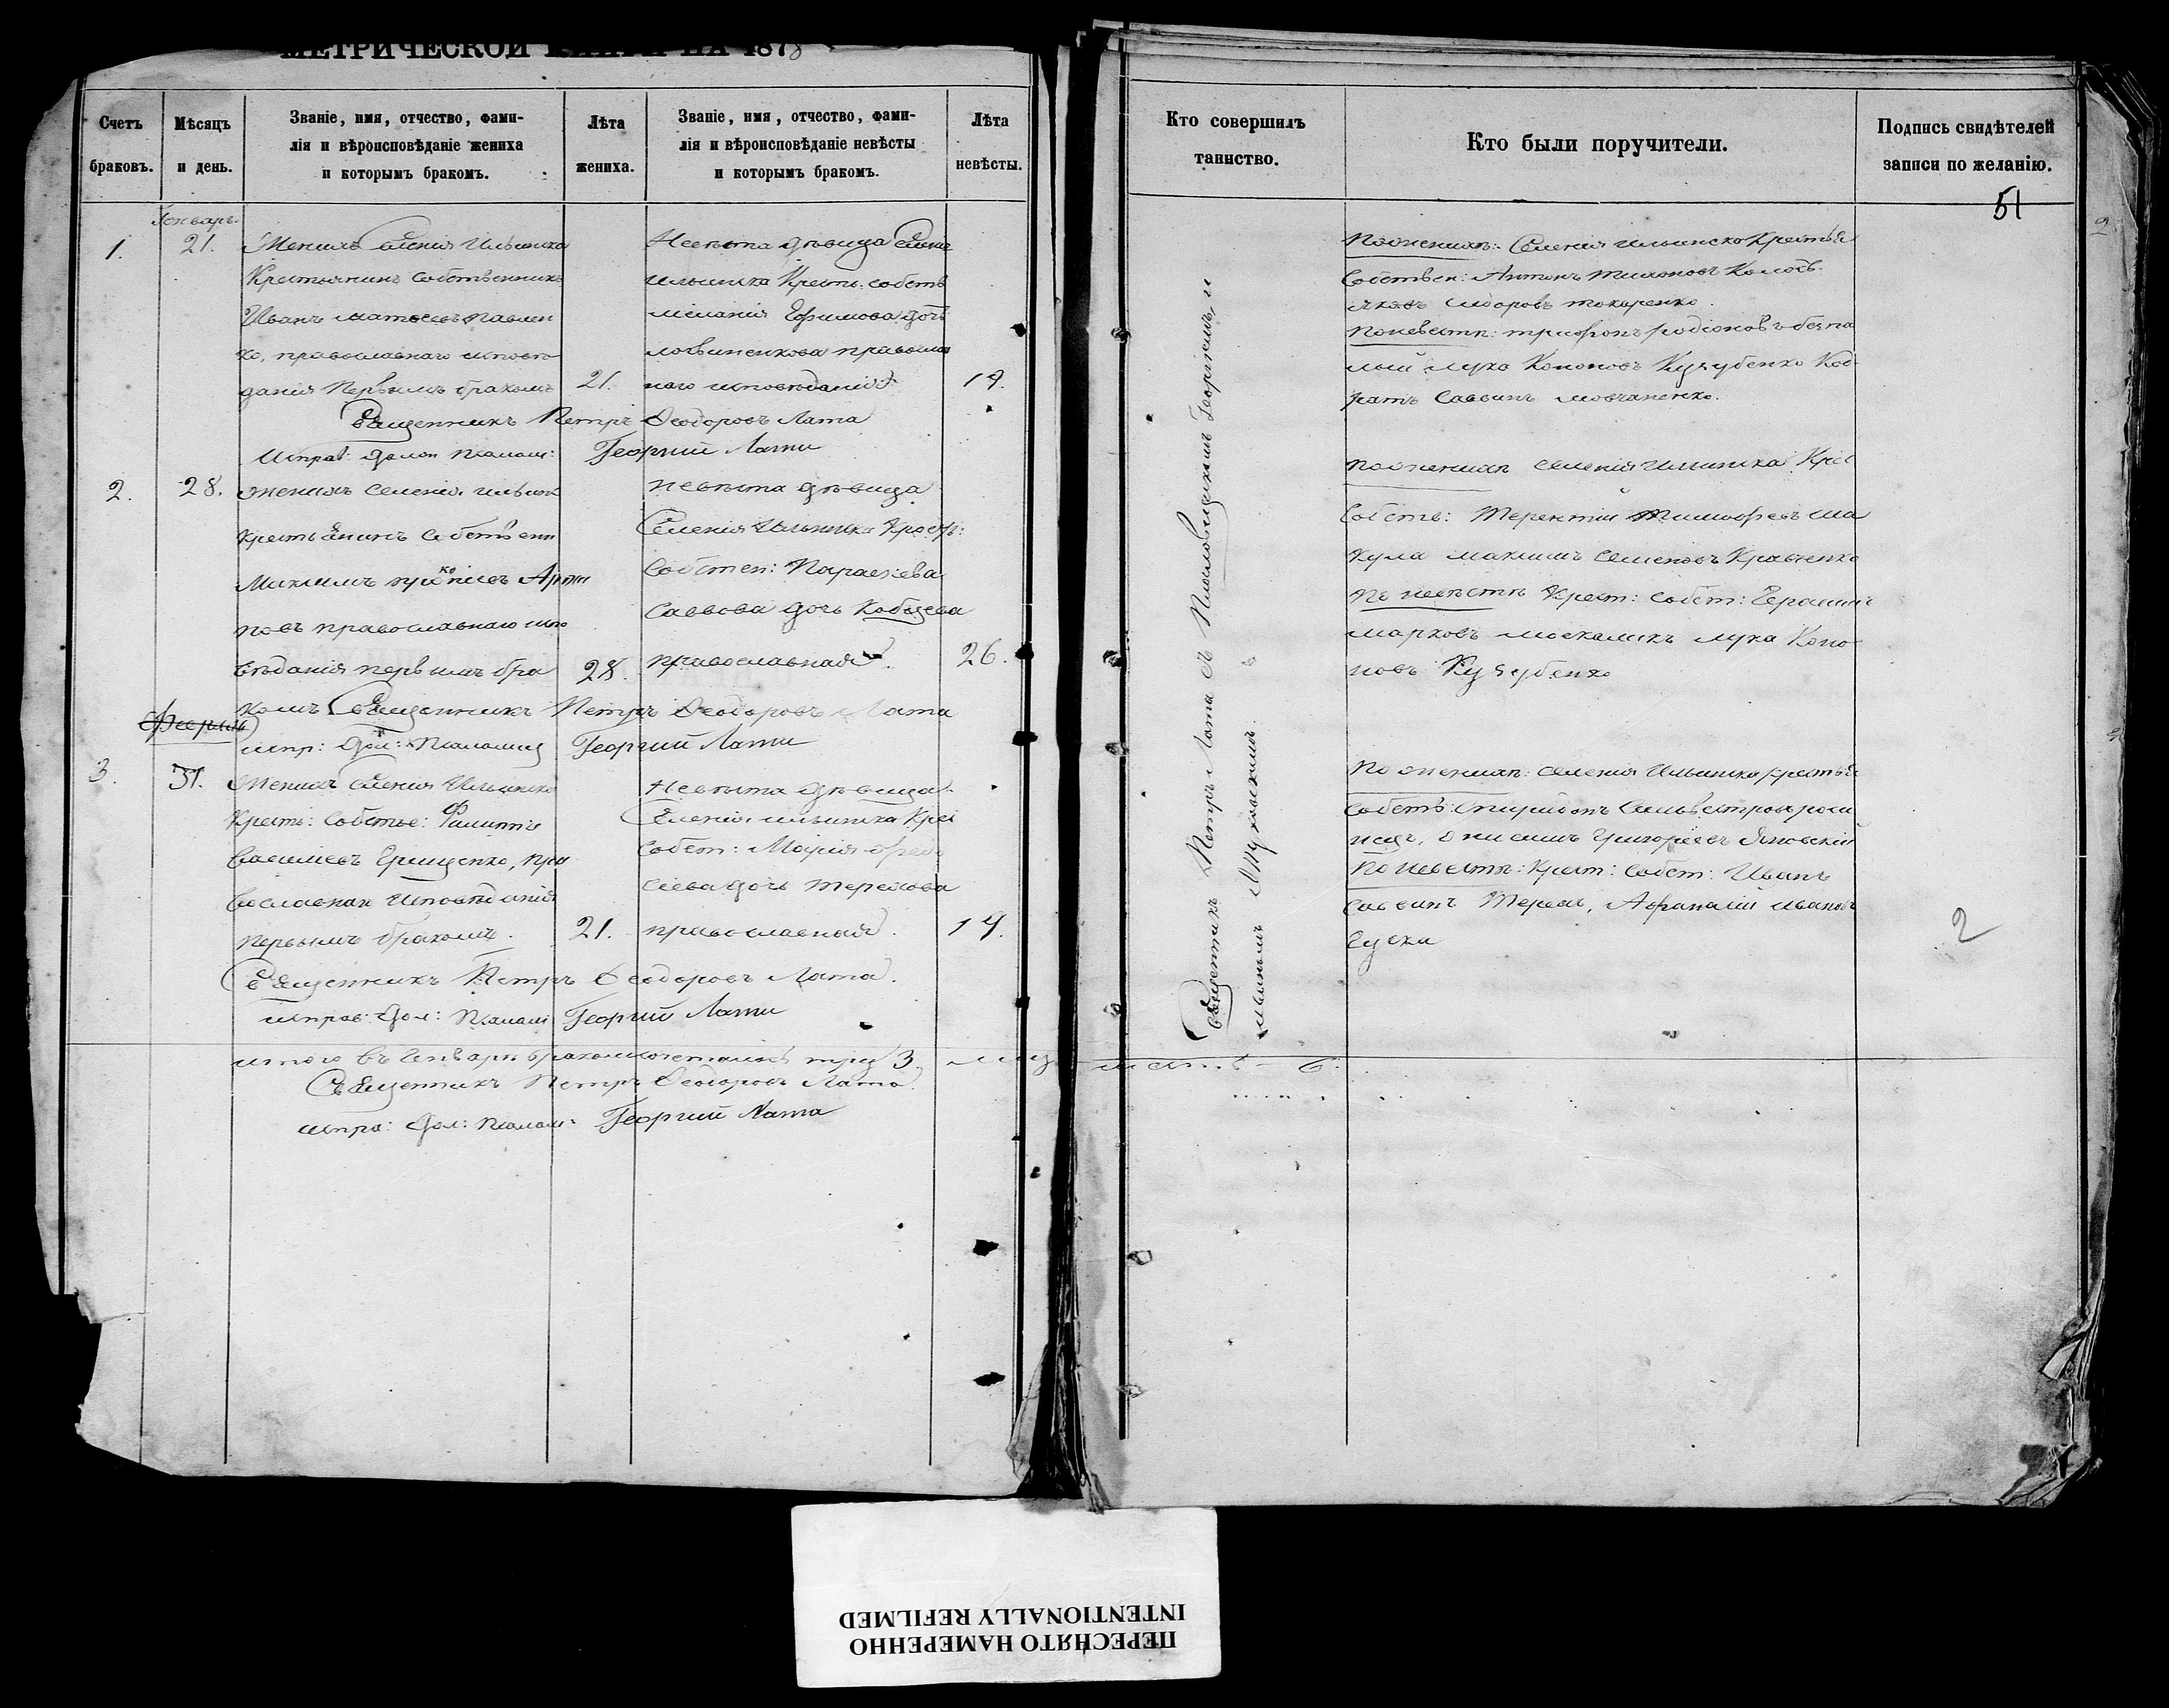 МЕТРИЧЕСКОЙ КНИГИ НА 1878
Счетъ браковъ.
Мѣсяцъ и день.
Званіе, имя, отчество, фами-
лія и вѣроисповѣданіе жениха
и которымъ бракомъ.
Лѣта жениха.
Званіе, имя, отчество, фами-
лія и вѣроисповѣданіе невѣсты
и которымъ бракомъ.
Лѣта невѣсты.
Генварь
1.
21.
Женихъ Селенія Ильинка
Крестьянинъ Собственникъ
Иванъ Матѳеевъ Павлен
ко, православнаго исповѣ
данія Первымъ бракомъ
21.
Невѣста дѣвица Селенія
Ильинка Кресть. собств
Меланія Ефимова дочь
Логвиненкова правосла
наго исповѣданія
19.
Священникъ Петръ Ѳеодоровъ Лата
Исправ: долж Псалом: Георгий Лата
2.
28.
женихъ Селенія Ильинк
крестьянинъ Собствен
Максимъ
повъ православнаго испо
вѣданія первымъ бра
28.
невѣста дѣвица
Селенія Ильинка Крест:
Собствен: Параскева
Саввова дочь Кобцева
православная.
26.
комъ Священникъ Петръ Ѳеодоровъ Лата
испр: Дол: Псаломщ Георгий Лата
3.
31.
Женихъ Селенія Ильинка
Кресть: Собстве: Филиппъ
Василіевъ Грищенко, пра
вославнаго исповѣданія
первымъ бракомъ.
21.
Невѣста дѣвица
Селенія Ильинка Крес
Собст: Марія
сіева дочь Терехова
православная.
19.
Священникъ Петръ Ѳеодоровъ Лата.
исправ: Дол: Псалом Георгий Лата
итого въ Генварѣ бракомъ сочеталось три 3. лиц шесть - 6.
Священникъ Петръ Ѳеодоровъ Лата.
испра: Дол: Псалом: Георгий Лата
Кто совершилъ таинство.
Кто были поручители.
Подпись свидѣтелей записи по желанію.
51
2
Священникъ Петръ Лата съ Псаломщикомъ Георгіемъ, и
По женихѣ: Селенія Ильинско Крестья
Собствен: Антонъ Тихоновъ
Яковъ Сидоровъ Токаренко.
По невѣстѣ: Трифонъ Родіоновъ Безпа
лый Лука Кононовъ Кузубенко Кон
ратъ Саввинъ Мовчаненко.
По женихѣ Селенія Ильинка Крес
Собств: Терентій Тимофеевъ Ша
кула Максимъ Семеновъ Кравченко
По невѣстѣ Крест: Собст: Герасимъ
Марковъ Москаликъ Лука Коно
новъ Кузубенко
По женихѣ: Селенія Ильинка крестья
Собств: Спиридонъ Сильвестровъ
Онисимъ Григоріевъ Яновскій
По невѣстѣ: Крест: Собст: Иванъ
Саввинъ Терехъ, Афанасій Ивановъ
Гуска
2
ПЕРЕСНЯТО НАМЕРЕННО
INTENTIONALLY REFILMED